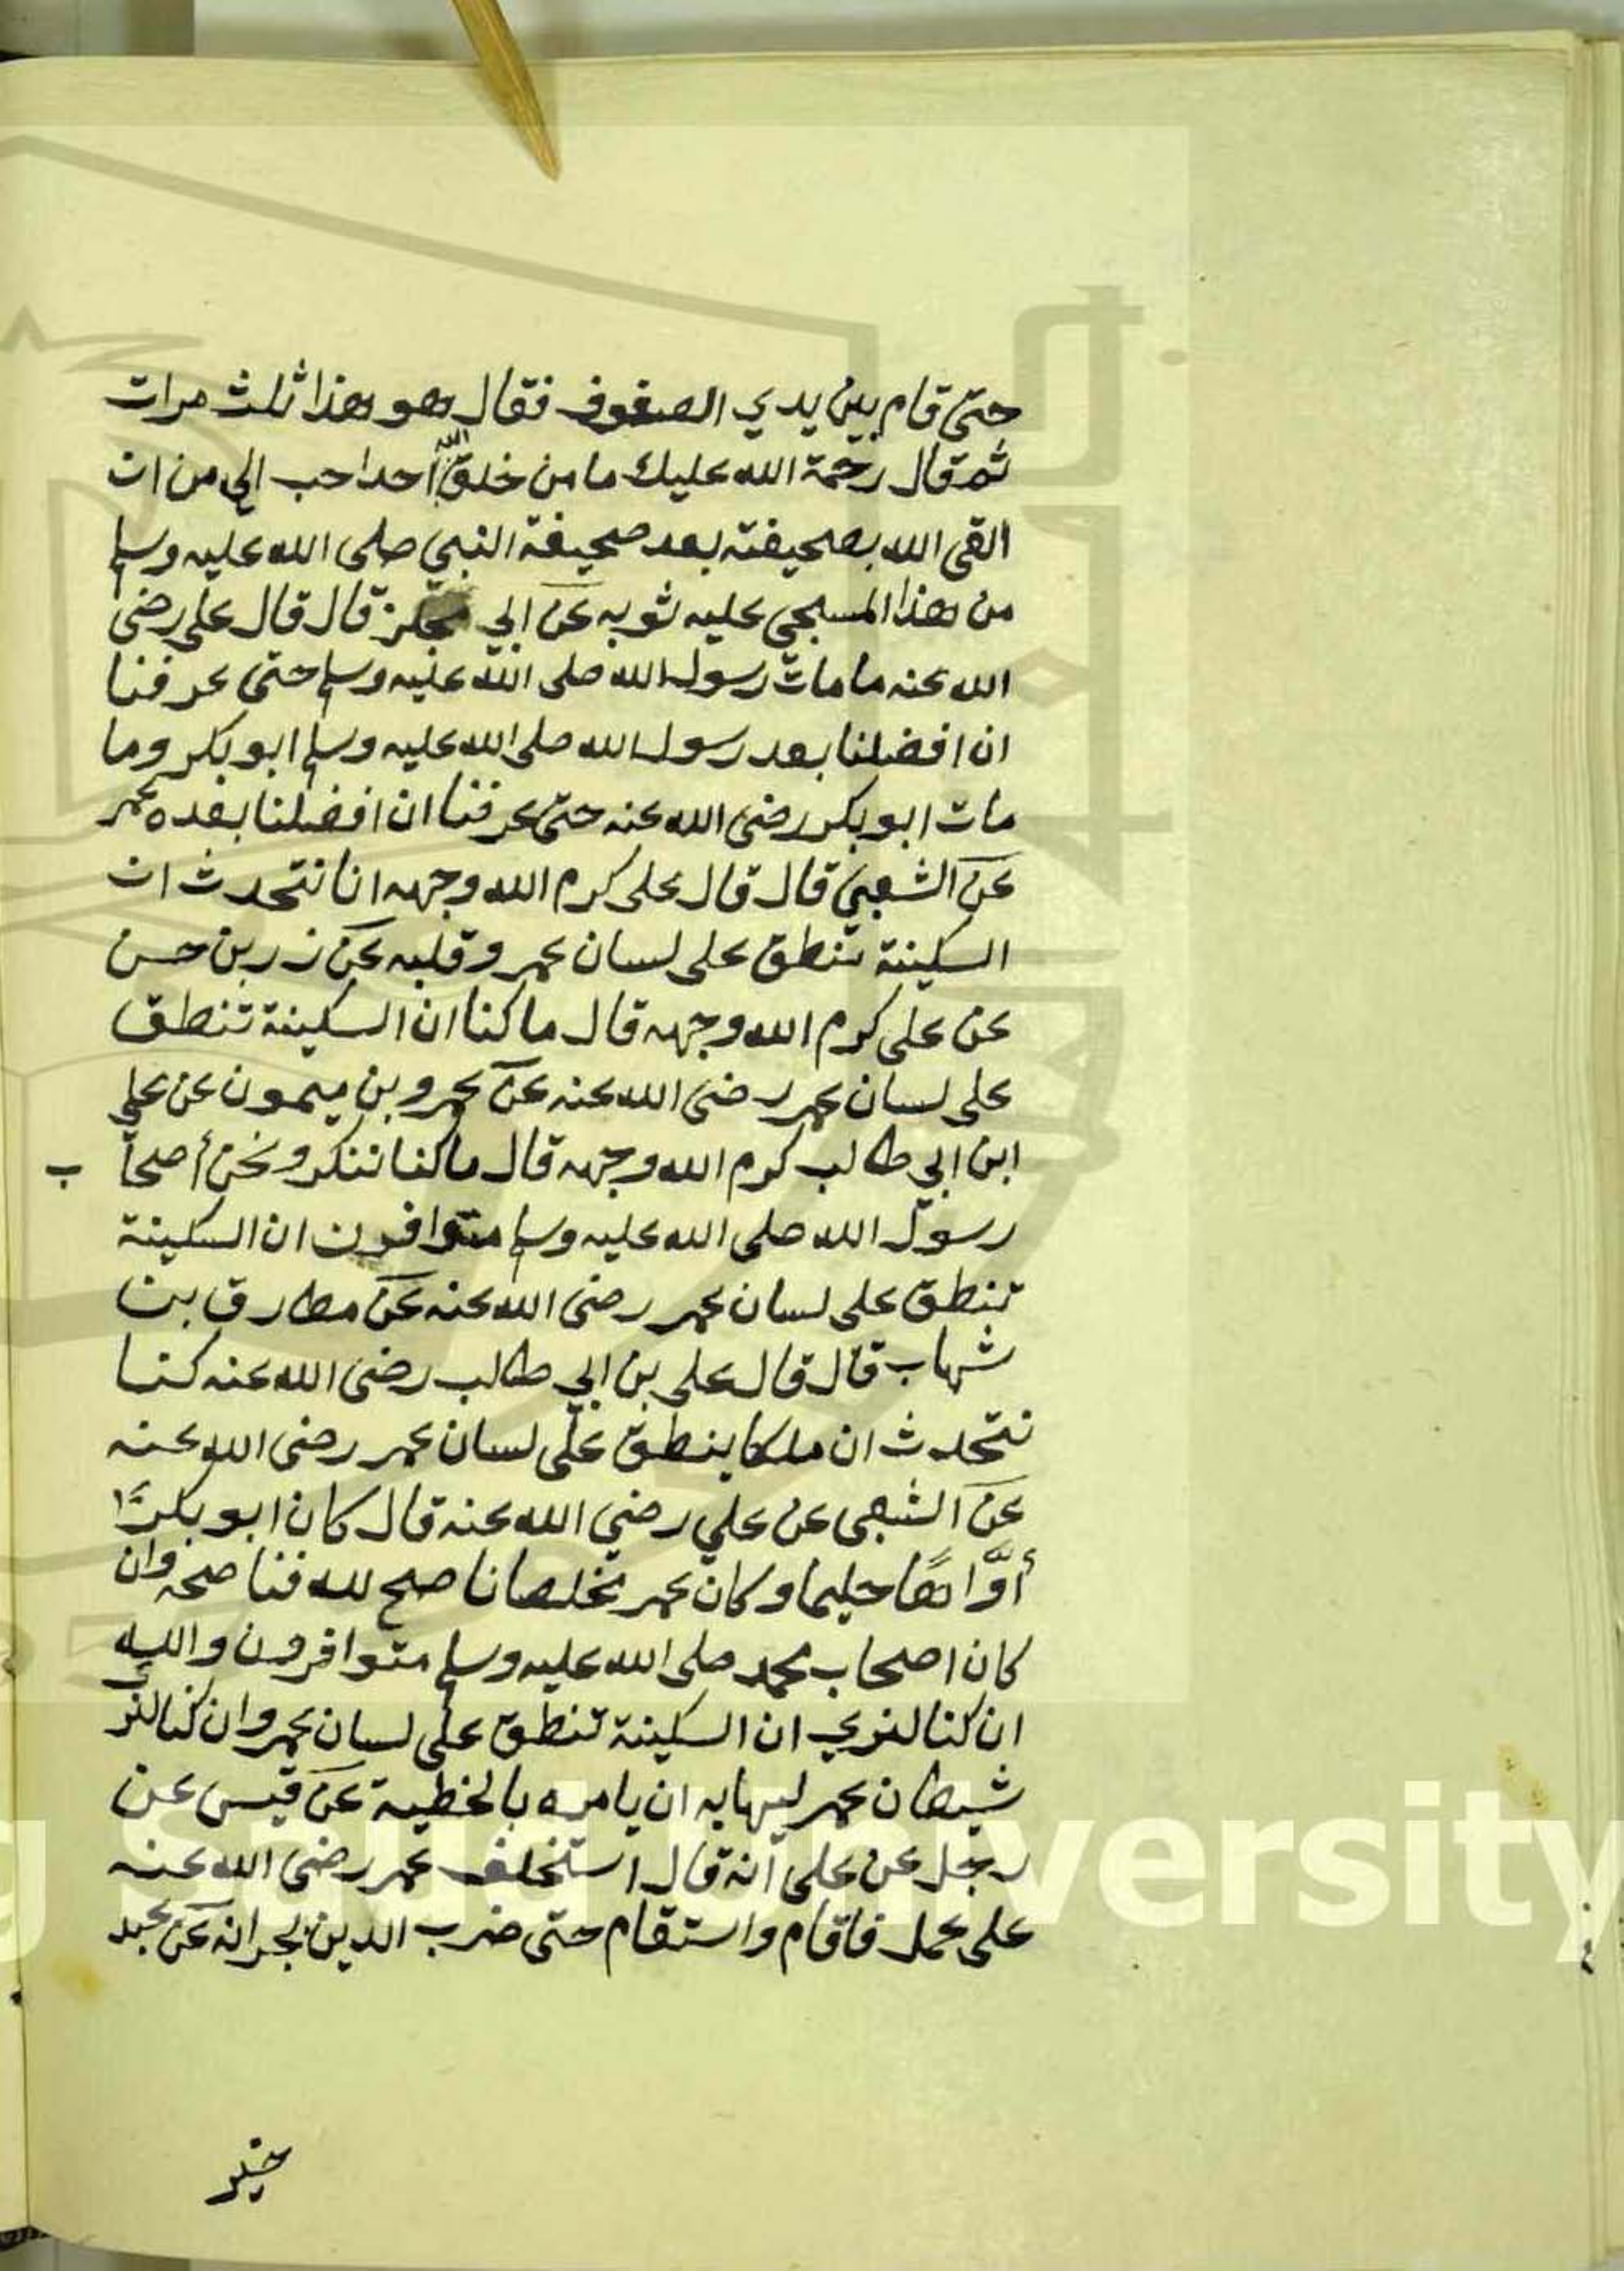 حتى قام بين يدي الصفوف فقال هو هذا ثلث مرات
ثم قال رحمة الله عليك ما من خلق الله أحدا حب الي من ان
القى الله بصحيفته بعد صحيفة النبي صلى الله عليه وسلم
من هذا المسجى عليه ثوبه عن ابي مجلز قال قال على رضى
الله عنه ما مات رسول الله صلى الله عليه وسلم حتى عرفنا
ان افضلنا بعد رسول الله صلى الله عليه وسلم ابو بكر وما
مات ابو بكر رضى الله عنه حتى عرفنا ان افضلنا بعده عمر
عن الشعبي قال قال على كرم الله وجهه انا نتحدث ان
السكينة تنطق على لسان عمر وقلبه عن زر بن حسن
عن على كرم الله وجهه قال ما كنا ان السكينة تنطق
على لسان عمر رضى الله عنه عن عمرو بن ميمون عن على
ابن ابي طالب كرم الله وجهه قال ما كنا ننكر ونحن أصحا ب
رسول الله صلى الله عليه وسلم متوافرون ان السكينة
تنطق على لسان عمر رضى الله عنه عن مطارق بن
شهاب قال قال على بن ابي طالب رضى الله عنه كنا
نتحدث ان ملكا ينطق على لسان عمر رضى الله عنه
عن الشعبى عن علي رضي الله عنه قال كان ابو بكر
أوَّاهًا حليما وكان عمر مخلصا ناصح لله فناصحه وان
كان اصحاب محمد صلى الله عليه وسلم متوافرون والله
ان كنا لنري ان السكينة تنطق على لسان عمر وان كنا لنرى
شيطان عمر ليهابه ان يامره بالخطية عن قيس عن
رجل عن على انه قال استخلف عمر رضى الله عنه
على عمل فاقام واستقام حتى ضرب الدين بجرانه عن عبد
خير
King Saud University